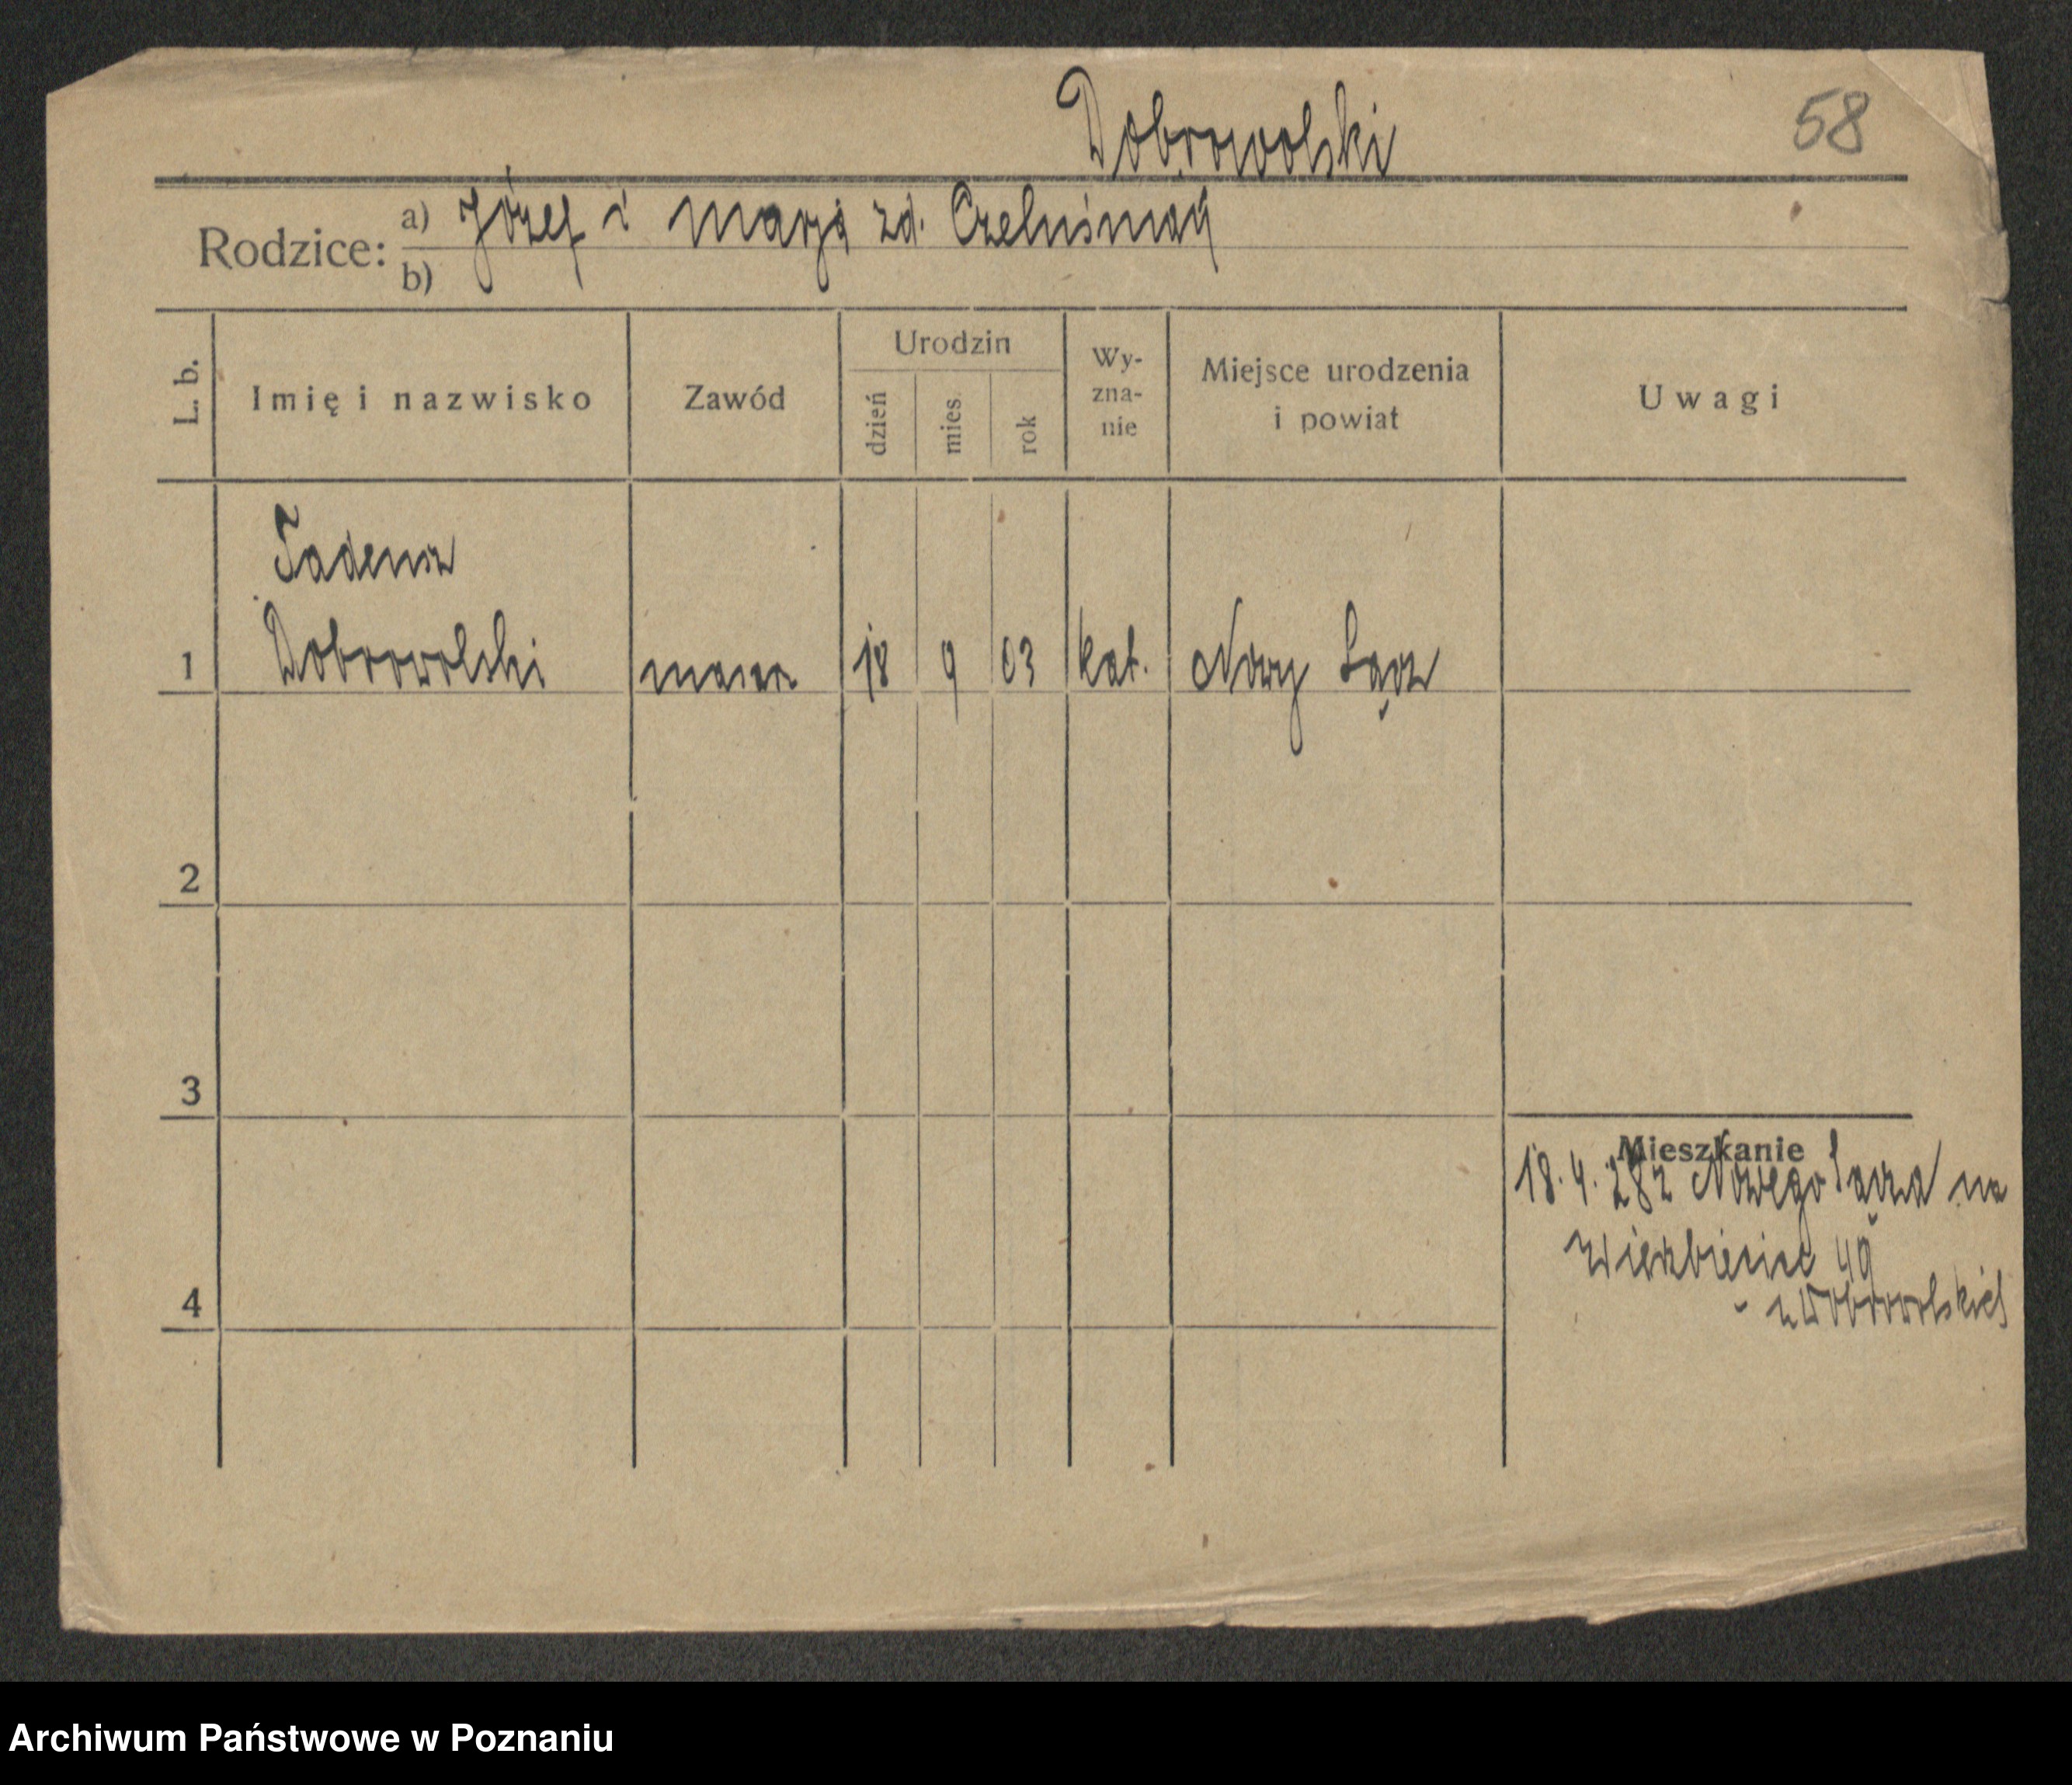 Dobrowolski
58
Rodzice: a) Józef i Marja zd.
b)
L. b.
Imię i nazwisko
Zawód
Urodzin
dzień
mies.
rok
Wy-
zna-
nie
Miejsce urodzenia
i powiat
Uwagi
Tadeusz
1 Dobrowolski 18 9 03 kat. Nowy Sącz
2
3
Mieszkanie
18. 4. 28 z Nowego Sącza na
49
4
Dobrowolskich
Archiwum Państwowe w Poznaniu